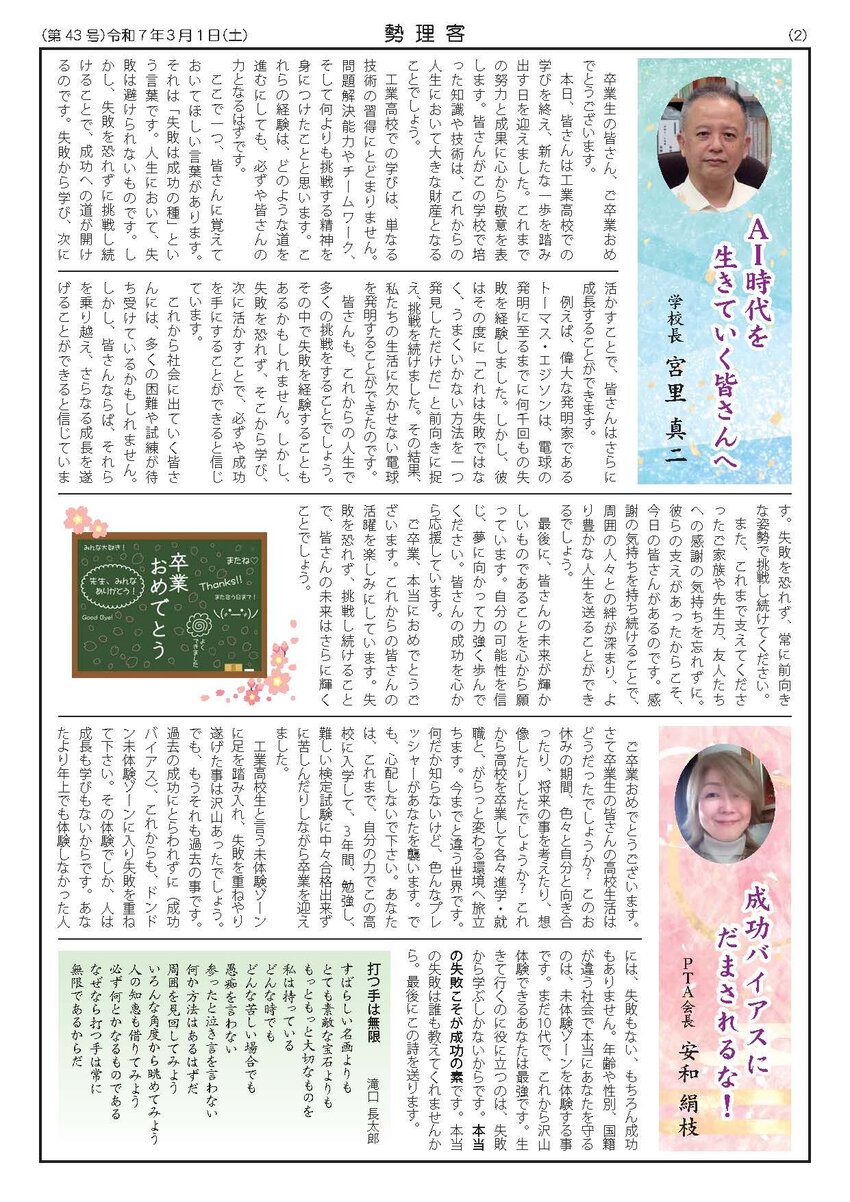 (第43号)令和7年3月1日(土)
勢理客
(2)
AI時代を
生きていく皆さんへ
学校長 宮里 真二
卒業生の皆さん、ご卒業おめ
でとうございます。
本日、皆さんは工業高校での
学びを終え、新たな一歩を踏み
出す日を迎えました。これまで
の努力と成果に心から敬意を表
します。皆さんがこの学校で培
った知識や技術は、これからの
人生において大きな財産となる
ことでしょう。
工業高校での学びは、単なる
技術の習得にとどまりません。
問題解決能力やチームワーク、
そして何よりも挑戦する精神を
身につけたことと思います。こ
れらの経験は、どのような道を
進むにしても、必ずや皆さんの
力となるはずです。
ここで一つ、皆さんに覚えて
おいてほしい言葉があります。
それは「失敗は成功の種」とい
う言葉です。人生において、失
敗は避けられないものです。し
かし、失敗を恐れずに挑戦し続
けることで、成功への道が開け
るのです。失敗から学び、次に
活かすことで、皆さんはさらに
成長することができます。
例えば、偉大な発明家である
トーマス・エジソンは、電球の
発明に至るまでに何千回もの失
敗を経験しました。しかし、彼
はその度に「これは失敗ではな
く、うまくいかない方法を一つ
発見しただけだ」と前向きに捉
え、挑戦を続けました。その結果、
私たちの生活に欠かせない電球
を発明することができたのです。
皆さんも、これからの人生で
多くの挑戦をすることでしょう。
その中で失敗を経験することも
あるかもしれません。しかし、
失敗を恐れず、そこから学び、
次に活かすことで、必ずや成功
を手にすることができると信じ
ています。
これから社会に出ていく皆さ
んには、多くの困難や試練が待
ち受けているかもしれません。
しかし、皆さんならば、それら
を乗り越え、さらなる成長を遂
げることができると信じていま
す。失敗を恐れず、常に前向き
な姿勢で挑戦し続けてください。
また、これまで支えてくださ
ったご家族や先生方、友人たち
への感謝の気持ちを忘れずに。
彼らの支えがあったからこそ、
今日の皆さんがあるのです。感
謝の気持ちを持ち続けることで、
周囲の人々との絆が深まり、よ
り豊かな人生を送ることができ
るでしょう。
最後に、皆さんの未来が輝か
しいものであることを心から願
っています。自分の可能性を信
じ、夢に向かって力強く歩んで
ください。皆さんの成功を心か
ら応援しています。
ご卒業、本当におめでとうご
ざいます。これからの皆さんの
活躍を楽しみにしています。失
敗を恐れず、挑戦し続けること
で、皆さんの未来はさらに輝く
ことでしょう。
みんな大好き!
またね♡
卒業
おめでとう
先生、みんな
ありがとう!
Thanks!!
また会う日まで!
Good Bye!
\(^ー^)/
よく
できました
成功バイアスに
だまされるな!
PTA会長 安和 絹枝
ご卒業おめでとうございます。
さて卒業生の皆さんの高校生活は
どうだったでしょうか?このお
休みの期間、色々と自分と向き合
ったり、将来の事を考えたり、想
像したりしたでしょうか?これ
から高校を卒業して各々進学・就
職と、がらっと変わる環境へ旅立
ちます。今までと違う世界です。
何だか知らないけど、色んなプレ
ッシャーがあなたを襲います。で
も、心配しないで下さい。あなた
は、これまで、自分の力でこの高
校に入学して、3年間、勉強し、
難しい検定試験に中々合格出来ず
に苦しんだりしながら卒業を迎え
ました。
工業高校生と言う未体験ゾーン
に足を踏み入れ、失敗を重ねやり
遂げた事は沢山あったでしょう。
でも、もうそれも過去の事です。
過去の成功にとらわれずに(成功
バイアス)、これからも、ドンド
ン未体験ゾーンに入り失敗を重ね
て下さい。その体験でしか、人は
成長も学びもないからです。あな
たより年上でも体験しなかった人
には、失敗もない、もちろん成功
もありません。年齢や性別、国籍
が違う社会で本当にあなたを守る
のは、未体験ゾーンを体験する事
です。まだ10代で、これから沢山
体験できるあなたは最強です。生
きて行くのに役に立つのは、失敗
から学ぶしかないからです。本当
の失敗こそが成功の素です。本当
の失敗は誰も教えてくれませんか
ら。最後にこの詩を送ります。
打つ手は無限
滝口 長太郎
すばらしい名画よりも
とても素敵な宝石よりも
もっともっと大切なものを
私は持っている
どんな時でも
どんな苦しい場合でも
愚痴を言わない
参ったと泣き言を言わない
何か方法はあるはずだ
周囲を見回してみよう
いろんな角度から眺めてみよう
人の知恵も借りてみよう
必ず何とかなるものである
なぜなら打つ手は常に
無限であるからだ